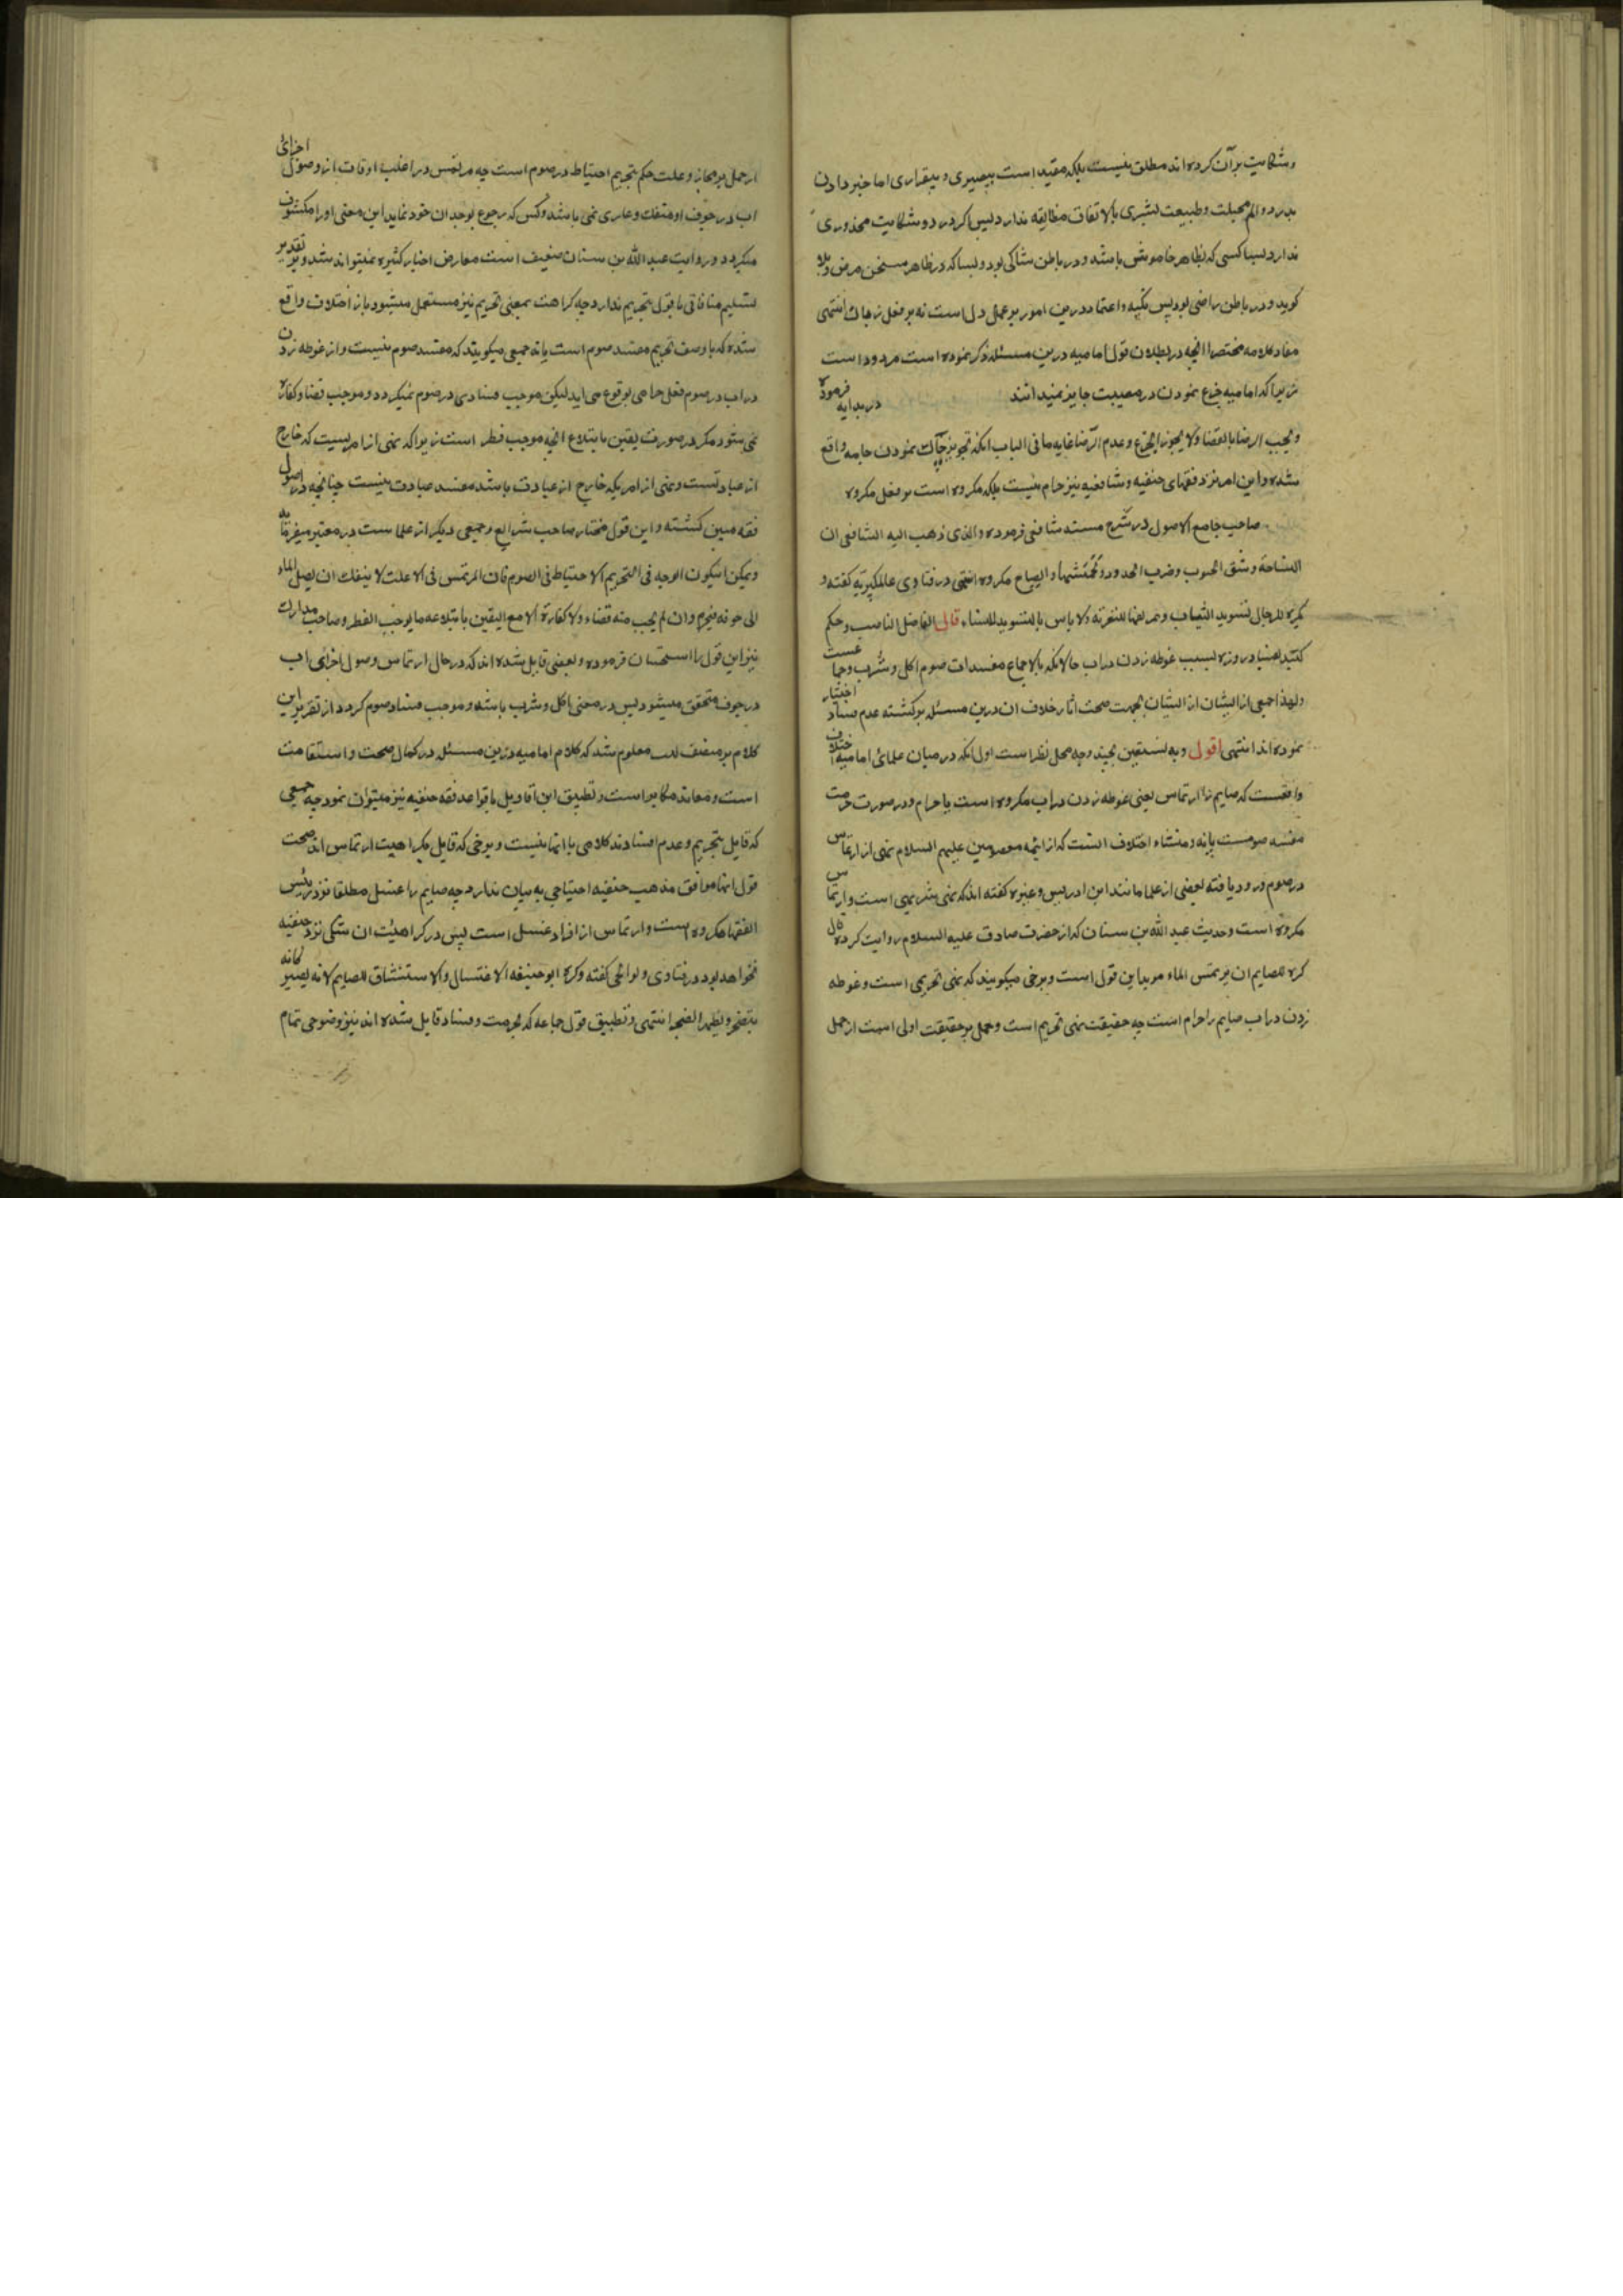 و شکایت بر آن کرده اند مطلق نیست بلکه مقید است به بیصبری و بیقراری اما خبر دادن
بدرد و الم بجبلت و طبیعت بشری بالاتفاق مضایقه ندارد پس اگر در درد و شکایت محذوری
ندارد بسا کسی که بظاهر خاموش باشد و در باطن شاکی بود و بسا که در ظاهر سخن مرض و بلا
کوید و در باطن راضی بود پس تکیه و اعتماد درین امور بر عمل دل است نه بر فعل زبان انتهی
مفاد کلامه مختصرا انچه در بطلان قول امامیه درین مسئله ذکر نموده است مردود است
زیرا که امامیه جزع نمودن در مصیبت جایز نمیدانند در بدایه فرموده
و یجب الرضا بالقضا و لا یجوز الجزع و عدم الرضا غایه ما فی الباب انکه تجویز چاک نمودن جامه واقع
شده و این امر نزد فقهای حنفیه و شافعیه نیز حرام نیست بلکه مکروه است بر فعل مکروه
صاحب جامع الاصول در شرح مسند شافعی فرموده و الذی ذهب الیه الشافعی ان
النیاحة و شق الجیوب و ضرب الخدود و تخمشیها و الصیاح مکروه انتهی در فتاوی عالمکیریه کفته و
یکره للرجال تسوید الثیاب و تمزیقها للتعزیه و لا باس بالتسوید للنساء قال الفاضل الناصب و حکم
کنند بفساد روزه بسبب غوطه زدن در اب حالانکه بالاجماع مفسدات صوم اکل و شرب و جماعست
و لهذا جمعی از ایشان از ایشان بجهت صحت اثار خلاف ان درین مسئله برکشته عدم فساد اختیار
نموده اند انتهی اقول و به نستعین بچند وجه محل نظر است اول انکه در میان علمائ امامیه اختلاف
واقعست که صایم را ارتماس یعنی غوطه زدن در اب مکروه است یا حرام و در صورت حرمت
مفسد صومست یا نه و منشاء اختلاف انست که از ایمه معصومین علیهم السلام نهی از ارتماس
در صوم ورود یافته بعضی از علما مانند ابن ادریس و غیره کفته اند که نهی تنزیهی است و ارتماس
مکروه است و حدیث عبد الله بن سنان که از حضرت صادق علیه السلام روایت کرده قال
کره للصایم ان یرتمس الماء موید این قول است و برخی میکویند که نهی تحریمی است و غوطه
زدن در اب صایم را حرام است چه حقیقت نهی تحریم است و حمل بر حقیقت اولی است از حمل
از حمل بر مجاز و علت حکم بتحریم احتیاط در صوم است چه مرتمس در اغلب اوقات از وصول اجزائ
اب در جوف او منفک و عاری نمی باشد و کس که رجوع بوجدان خود نماید این معنی او را مکشوف
میکردد و روایت عبد الله بن سنان ضعیف است معارض اخبار کثیره نمیتواند شد و بر تقدیر
تسلیم منافاتی با قول بتحریم ندارد چه کراهت بمعنی تحریم نیز مستعمل میشود باز اختلاف واقع
شده که با وصف تحریم مفسد صوم است یا نه جمعی میکویند که مفسد صوم نیست و از غوطه زدن
در اب در صوم فعل حرامی بوقوع می اید لیکن موجب فسادی در صوم نمیکردد و موجب قضا و کفاره
نمی شود مکر در صورت یقین بابتلاع انچه موجب فطر است زیرا که نهی از امریست که خارج
از عبادتست و نهی از امریکه خارج از عبادت باشد مفسد عبادت نیست چنانچه در اصول
فقه مبین کشته و این قول مختار صاحب شرایع و جمعی دیکر از علماست در معتبر میفرماید
و یمکن ان یکون الوجه فی التحریم الاحتیاط فی الصوم فان المرتمس فی الاغلب لا ینفک ان یصل الماء
الی جوفه فیحرم و ان لم یجب منه قضاء و لا کفارة الا مع الیقین بابتلاعه ما یوجب الفطر و صاحب مدارک
نیز این قول را استحسان فرموده و بعضی قایل شده اند که در حال ارتماس وصول اجزائ اب
در جوف متحقق میشود پس در معنی اکل و شرب باشد و موجب فساد صوم کردد از تقریر این
کلام بر منصف لبیب معلوم شد که کلام امامیه درین مسئله در کمال صحت و استقامت
است و معاند مکابر است و تطبیق این اقاویل با قواعد فقه حنفیه نیز میتوان نمود چه جمعی
که قایل بتحریم و عدم افسادند کلامی با انها نیست و برخی که قایل بکراهیت ارتماس اند صحت
قول انها موافق مذهب حنفیه احتیاجی به بیان ندارد چه صایم را غسل مطلقا نزد رئیس
الفقها مکروه است و ارتماس از افراد غسل است پس در کراهیت ان شکی نزد حنفیه
نخواهد بود در فتاوی ولوالجی کفته و کره ابو حنیفه الاغتسال و الاستنشاق للصایم لانه یصیر کانه
یتضجر و یظهر الضجر انتهی و تطبیق قول جماعه که بحرمت و فساد قایل شده اند نیز وضوحی تمام